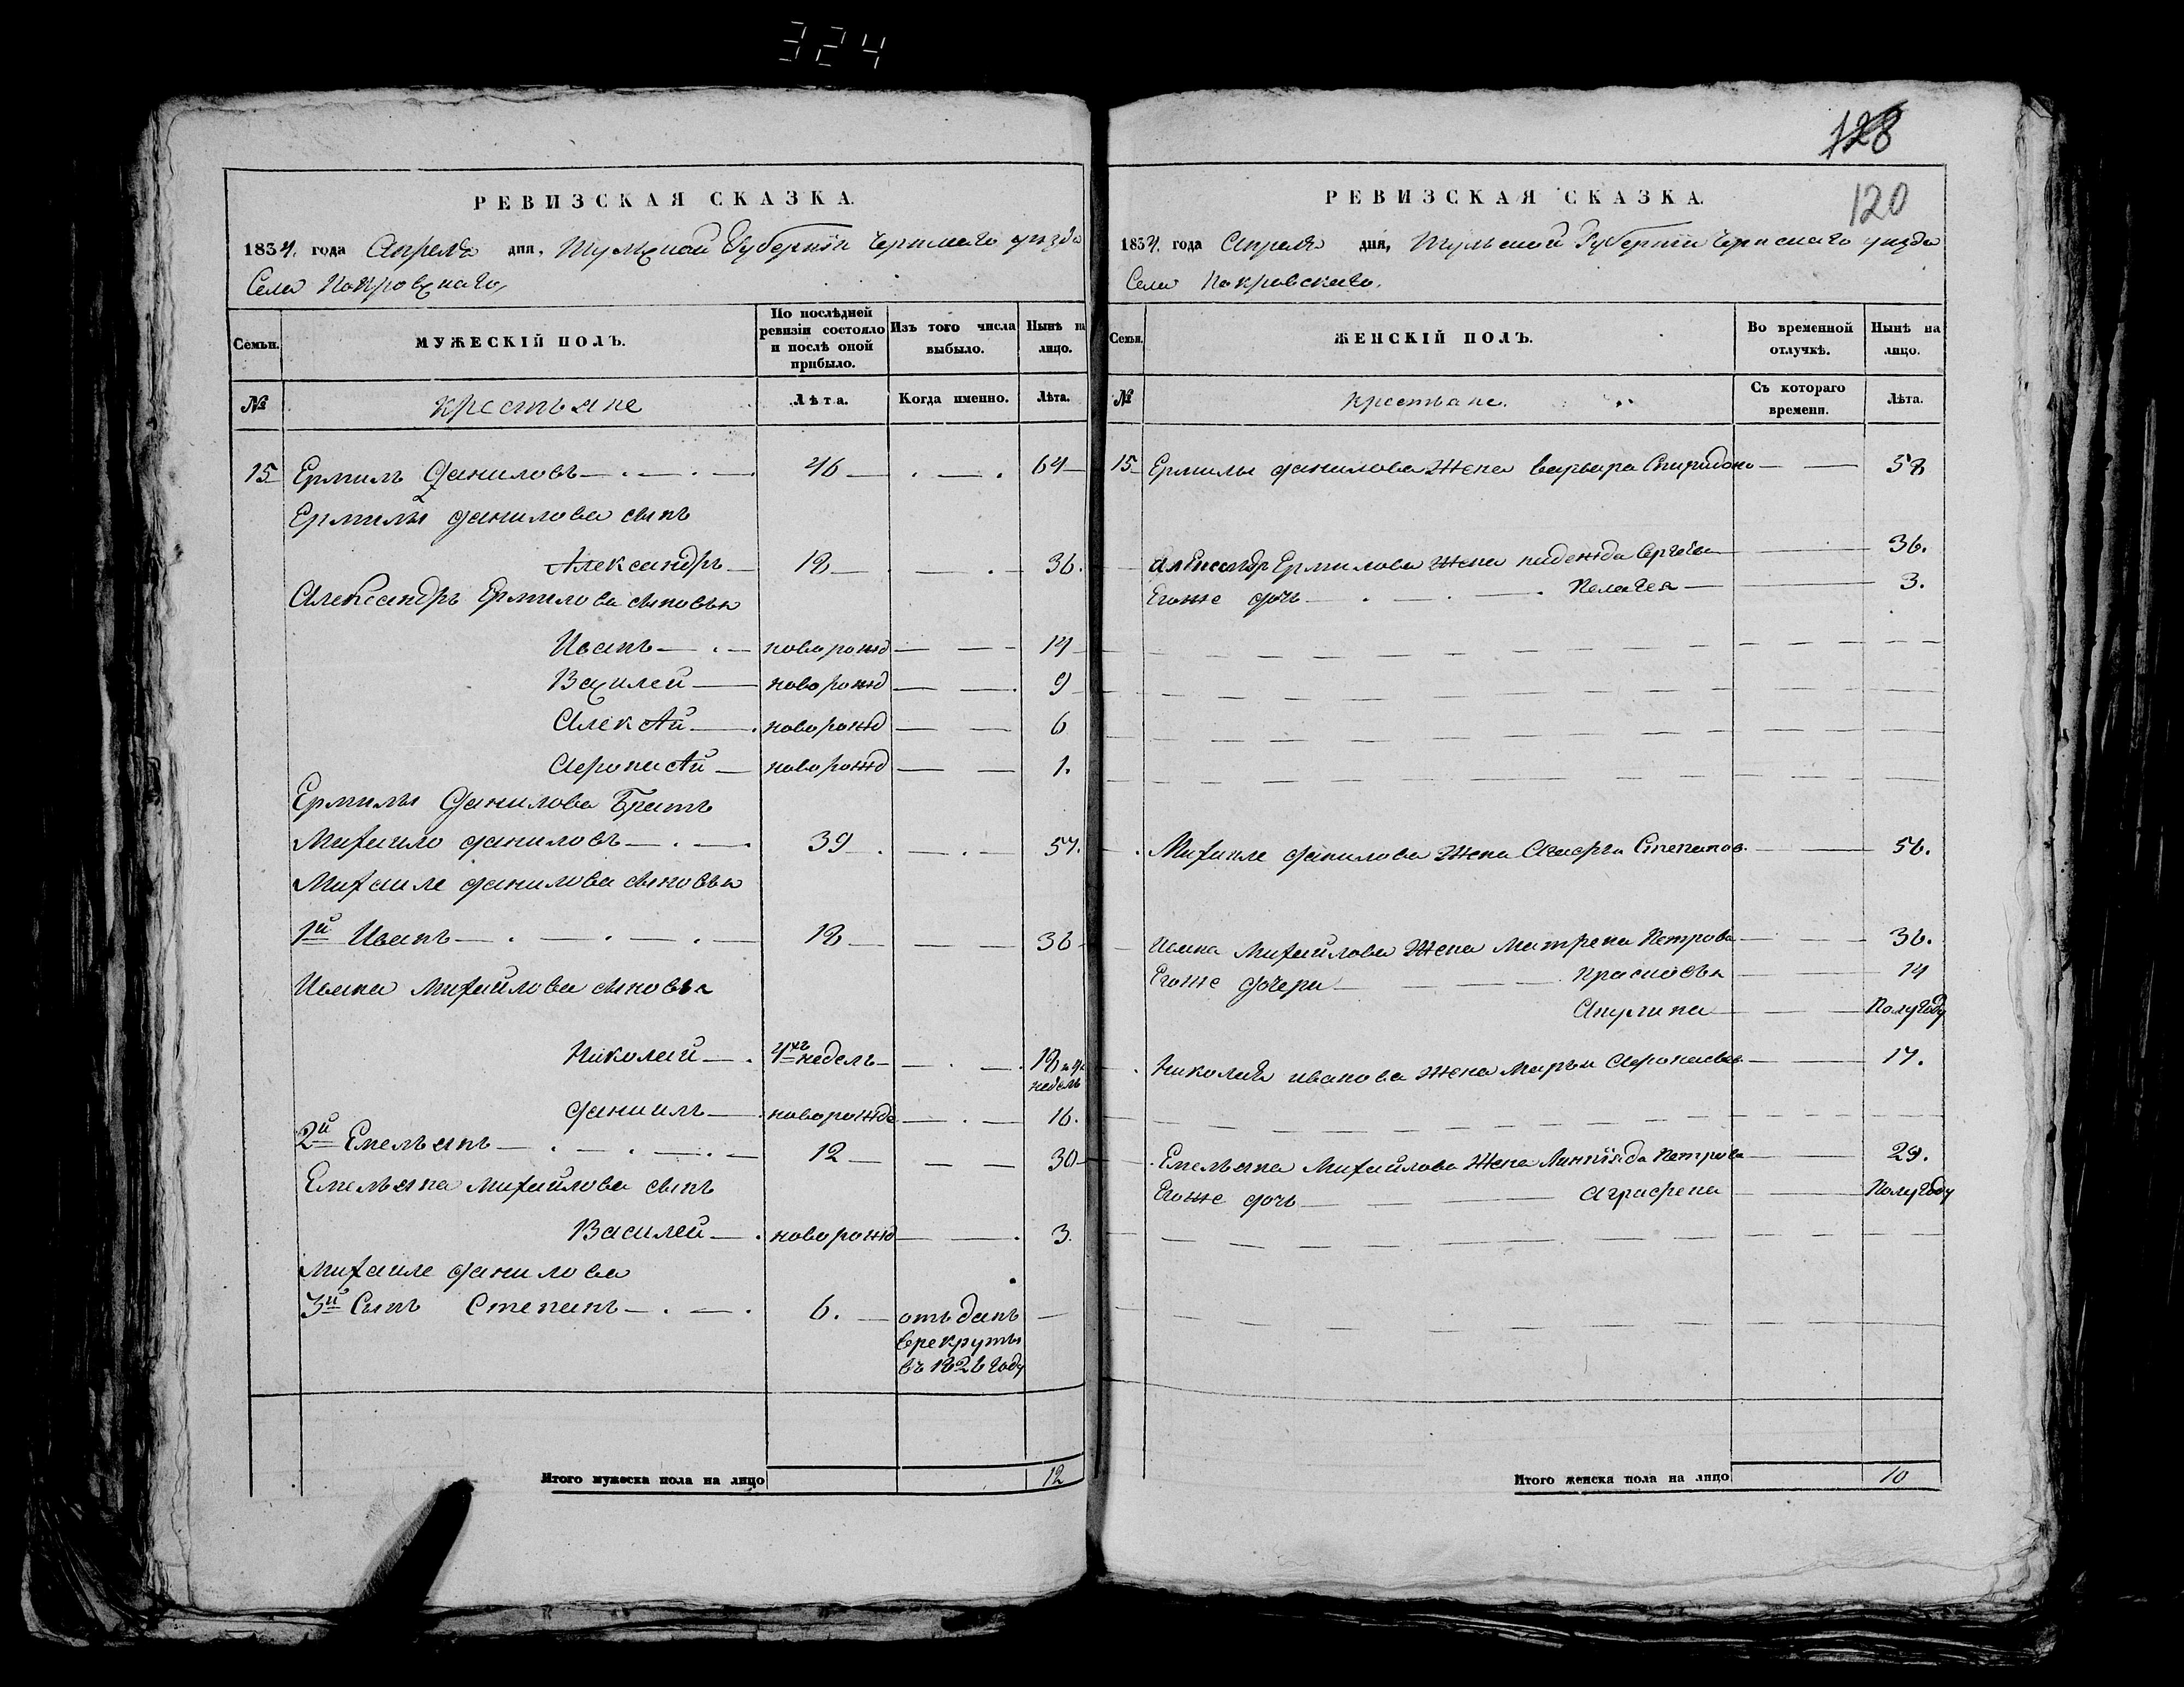 324
РЕВИЗСКАЯ СКАЗКА.
1834. года Апреля дня, Тульской Губернiи Чернскаго уезда
Села Покровскаго,
Семьи. МУЖЕСКІЙ ПОЛЪ. По послѣдней ревизіи состояло и послѣ оной прибыло. Изъ того числа выбыло. Нынѣ на лицо.
№ крестьяне Лѣта. Когда именно. Лѣта.
15 Ермилъ Даниловъ 46 64
Ермилы Данилова сынъ
Александръ 18 36.
Александръ Ермилова сыновья
Иванъ новорожд 14
Василей новорожд 9
Алексѣй новорожд 6
Афонасѣй новорожд 1.
Ермилы Данилова Братъ
Михаило Даниловъ 39 57.
Михаиле Данилова сыновья
1й Иванъ 18 36
Ивана Михайлова сыновья
Николай 4хъ недель 18 и 4 недель
Даниилъ новорожде 16.
2й Емельянъ 12 30
Емельяна Михайлова сынъ
Василей новорожд 3.
Михаиле Данилова
3й Сынъ Степанъ 6. отъданъ
врекруты
въ 1826 году
Итого мужеска пола на лицо 12
128
120
РЕВИЗСКАЯ СКАЗКА.
1834. года Апреля дня, Тульской Губернiи Чернскаго уезда
Села Покровскаго.
Семьи. ЖЕНСКІЙ ПОЛЪ. Во временной отлучкѣ. Нынѣ на лицо.
№ крестьяне. Съ котораго времени. Лѣта.
15 Ермилы Данилова Жена варвара Спиридоно 58
Александр Ермилова Жена надежда Сергѣева 36.
Егоже дочь Пелагея 3.
Михаиле Данилова Жена Агафья Степанов. 56.
Ивана Михайлова Жена Матрена Петрова 36.
Егоже дочери Прасковья 14
Акулина Полугоду
Николая иванова Жена Марья Афонасьева 17.
Емельяна Михайлова Жена Петрова 29.
Егоже дочь Аграфена Полугоду
Итого женска пола на лицо 10